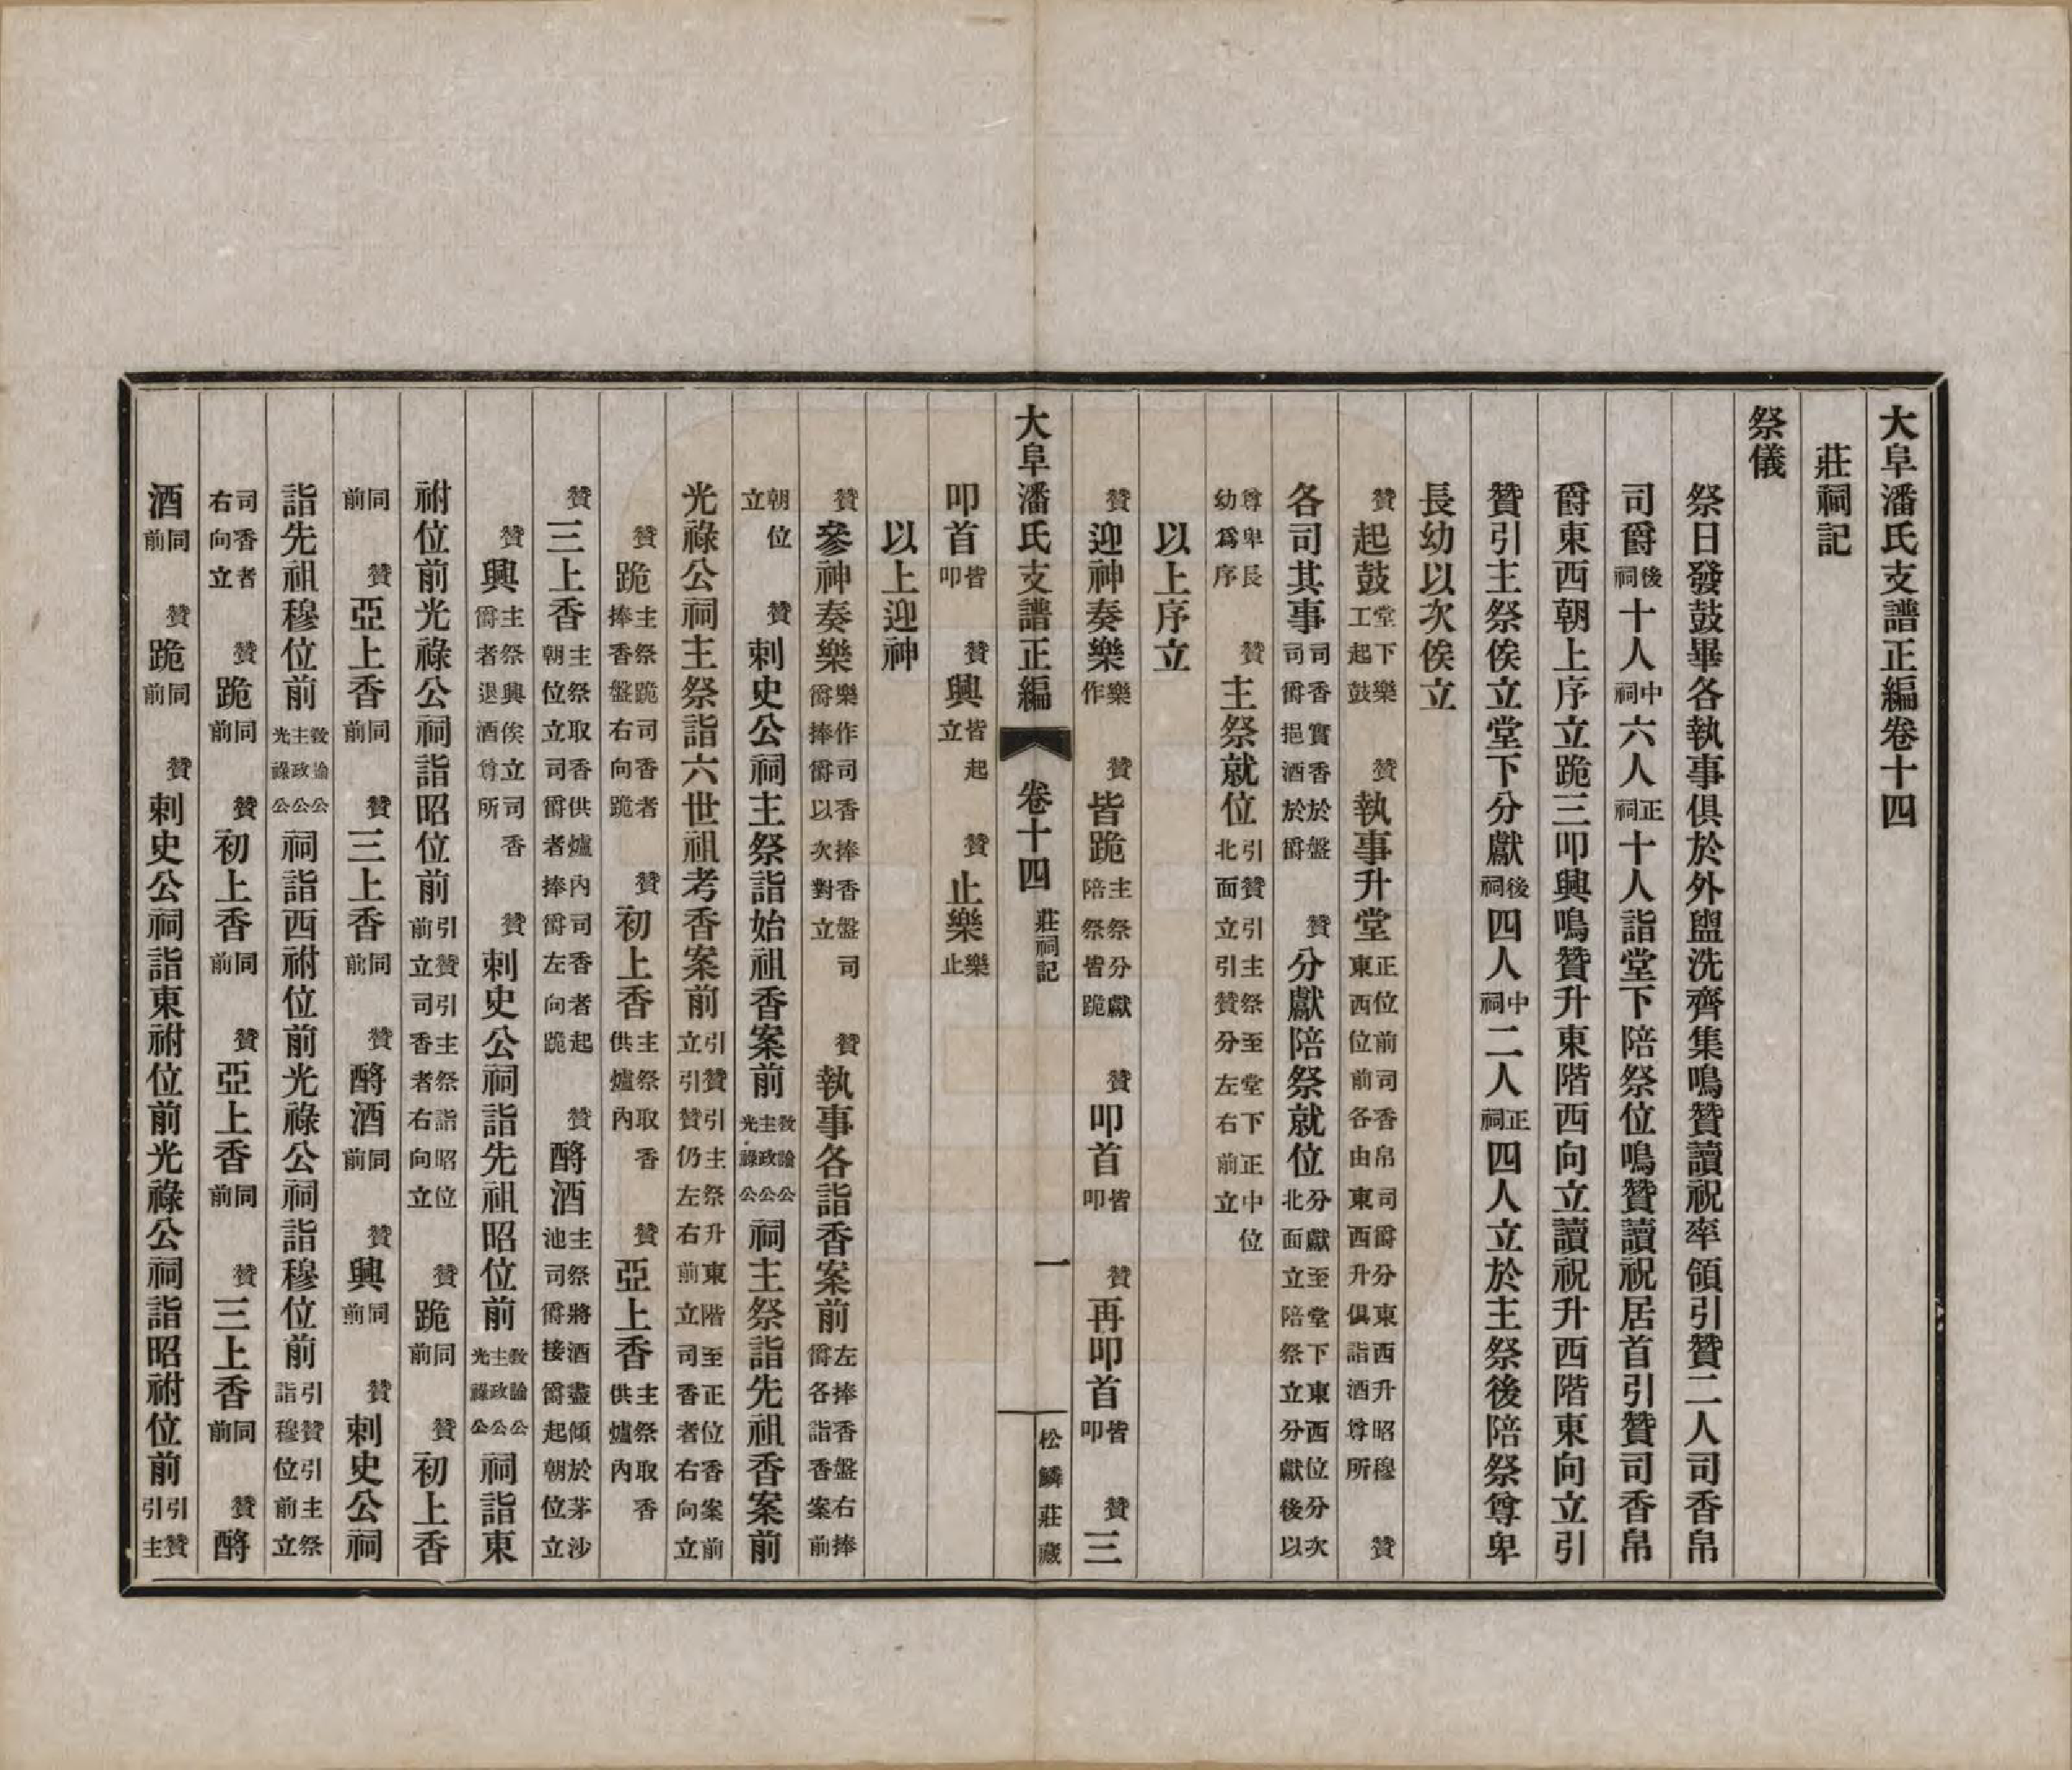 大阜潘氏支譜正編卷十四
莊祠記
祭儀
祭日發鼓畢各執事俱於外盥洗齊集鳴贊讀祝率領引贊二人司香帛
司爵後祠十人中祠六人正祠十人詣堂下陪祭位鳴贊讀祝居首引贊司香帛
爵東西朝上序立跪三叩興鳴贊升東階西向立讀祝升西階東向立引
贊引主祭俟立堂下分獻後祠四人中祠二人正祠四人立於主祭後陪祭尊卑
長幼以次俟立
贊起鼓堂下樂工起鼓 贊執事升堂正位前司香帛司爵分東西升昭穆東西位前各由東西升俱詣酒尊所 贊
各司其事司香實香於盤司爵挹酒於爵 贊分獻陪祭就位分獻至堂下東西位分次北面立陪祭立分獻後以
尊卑長幼爲序 贊主祭就位引贊引主祭至堂下正中位北面立引贊分左右前立
以上序立
贊迎神奏樂樂作 贊皆跪主祭分獻陪祭皆跪 贊叩首皆叩 贊再叩首皆叩 贊三
叩首皆叩 贊興皆起立 贊止樂樂止
以上迎神
贊參神奏樂樂作司香捧香盤司爵捧爵以次對立 贊執事各詣香案前左捧香盤右捧爵各詣香案前
朝位立 贊刺史公祠主祭詣始祖香案前敎諭公主政公光祿公祠主祭詣先祖香案前
光祿公祠主祭詣六世祖考香案前引贊引主祭升東階至正位香案前立引贊仍左右前立司香者右向立
贊跪主祭跪司香者捧香盤右向跪 贊初上香主祭取香供爐內 贊亞上香主祭取香供爐內
贊三上香主祭取香供爐內司香者起朝位立司爵者捧爵左向跪 贊酹酒主祭將酒盡傾於茅沙池司爵接爵起朝位立
贊興主祭興俟立司香爵者退酒尊所 贊刺史公祠詣先祖昭位前敎諭公主政公光祿公祠詣東
祔位前光祿公祠詣昭位前引贊引主祭詣昭位前立司香者右向立 贊跪同前 贊初上香
同前 贊亞上香同前 贊三上香同前 贊酹酒同前 贊興同前 贊刺史公祠
詣先祖穆位前敎諭公主政公光祿公祠詣西祔位前光祿公祠詣穆位前引贊引主祭詣穆位前立
司香者右向立 贊跪同前 贊初上香同前 贊亞上香同前 贊三上香同前 贊酹
酒同前 贊跪同前 贊刺史公祠詣東祔位前光祿公祠詣昭祔位前引贊引主
大阜潘氏支譜正編 卷十四 莊祠記 一 松鱗莊藏